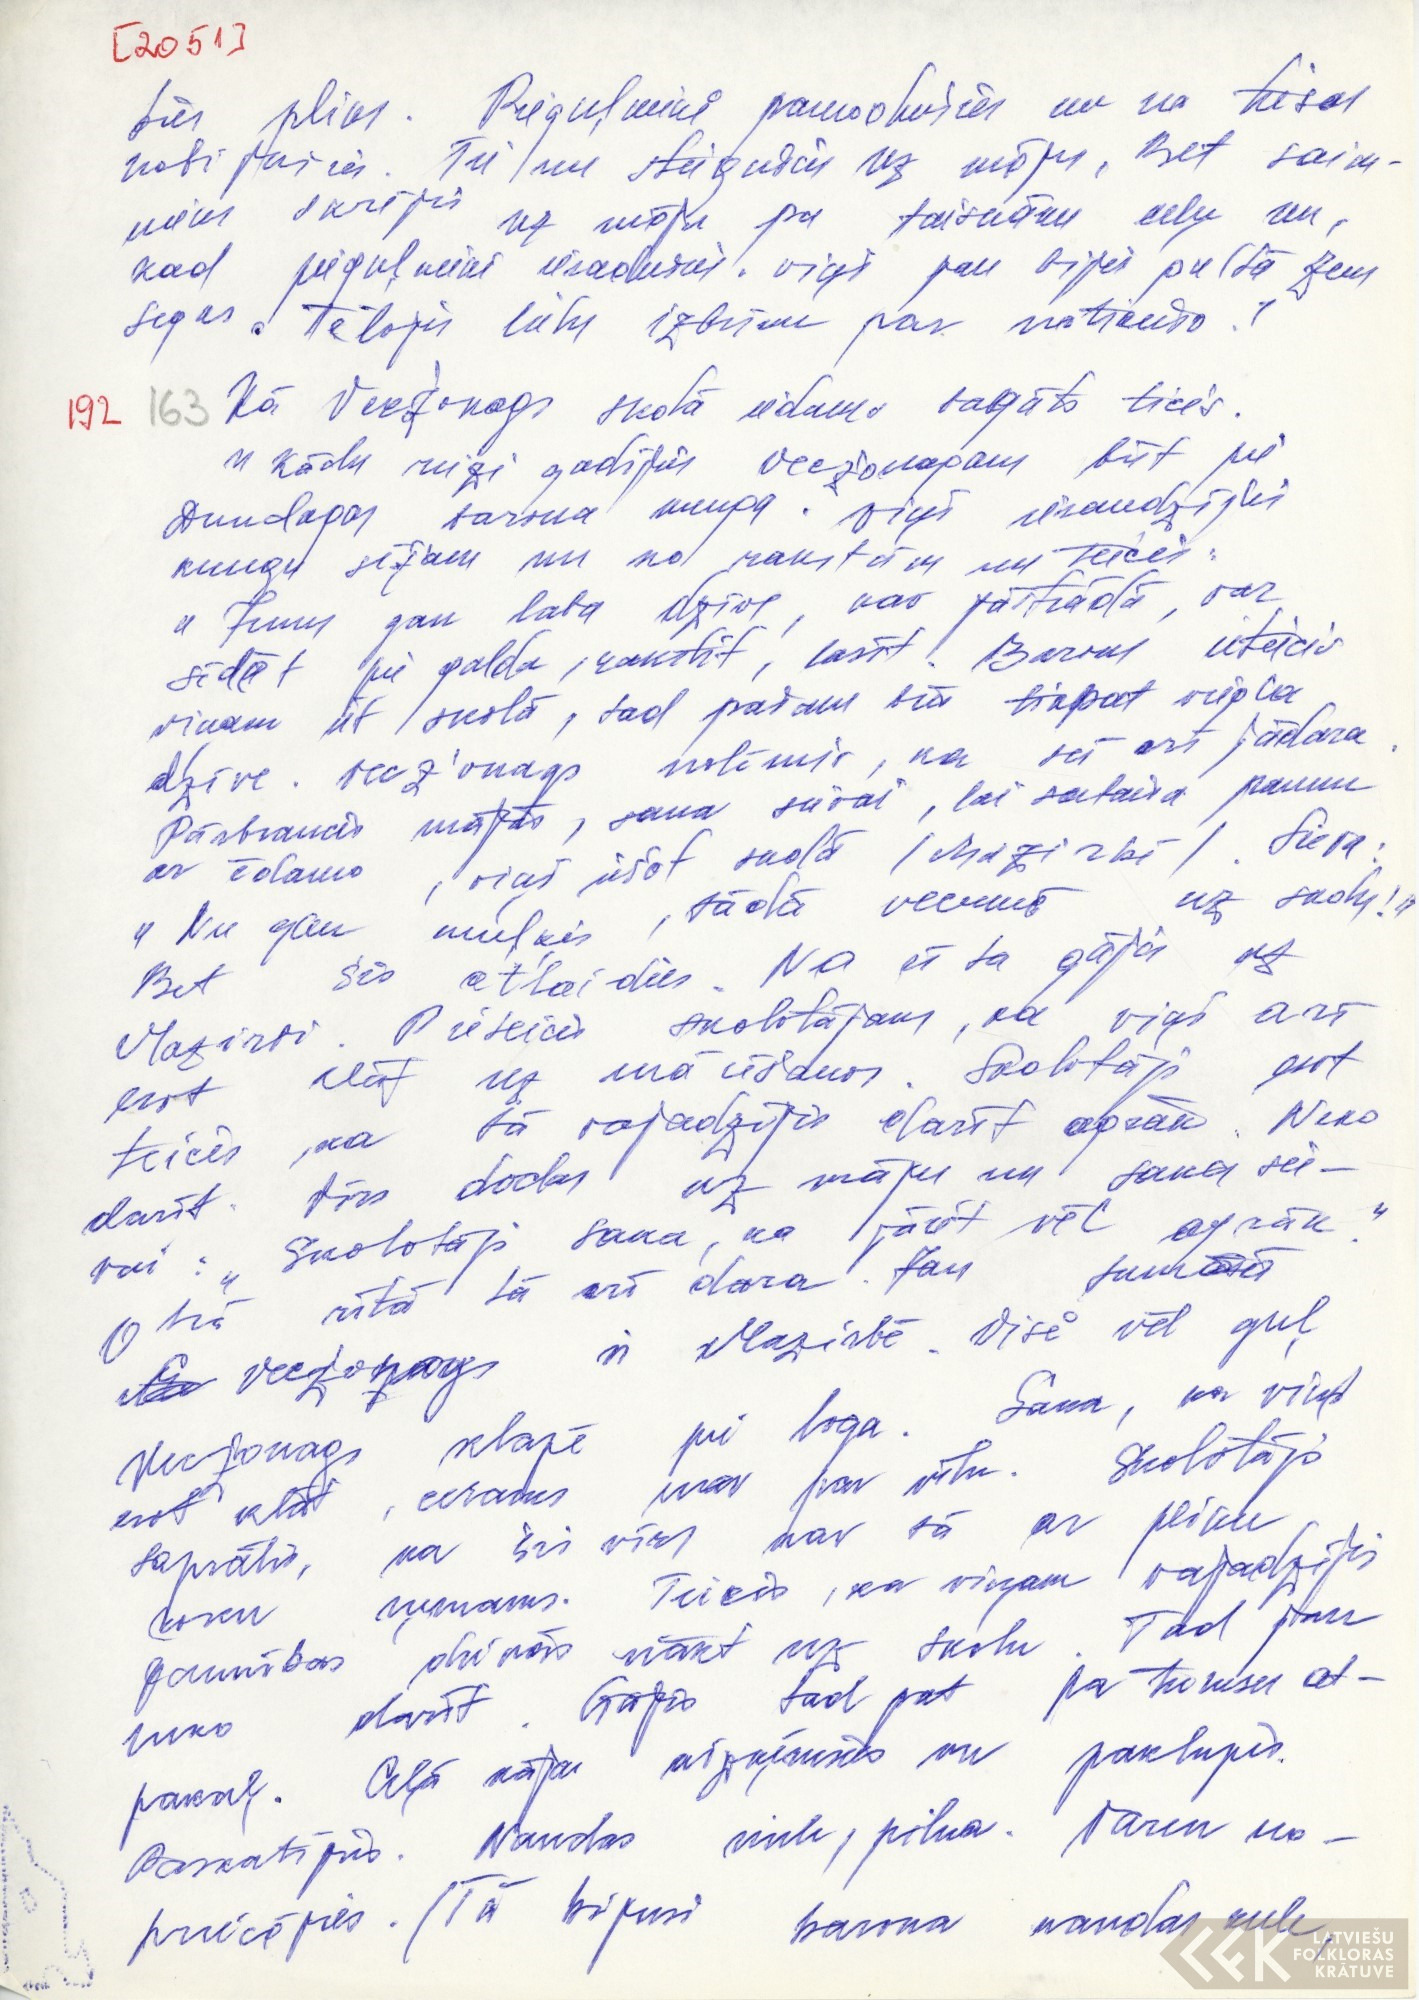 [2051]
bijis pliks. Piegulnieki pamodušies un no tiesas
nobijušies. Tie nu steigušies uz māju. Bet saim-
nieks skrējis uz māju pa taisnāku ceļu un,
kad piegulnieki ieradušies. viņš jau bijis gultā zem
segas. Tēlojis lielu izbrīnu par notikušo."
192 163 Kā Veczonags skolā iedams bagāts ticis.
" Kādu reizi gadījies Veczonagam būt pie
Dundagas barona kunga. Viņš ieraudzījis
kungu sēžam un ko rakstām un teicis:
" Jums gan laba dzīve, nav jāstrādā, var
sēdēt pie galda, rakstīt, lasīt. Barons ieteicis
viņam iet skolā, tad pašam būs tikpat viegla
dzīve. Veczonags nolēmis, ka tā arī jādara.
Pārbraucis mājās, saka sievai, lai sataisa paunu
ar ēdamo, viņš iešot skolā /Mazirbē/. Sieva:
" Nu gan muļķis, tādā vecumā uz skolu!"
Bet šis atlaidies. No rīta gājis uz
Mazirbi. Pieteicis skolotājam, ka viņš arī
esot klāt uz mācīšanos. Skolotājs esot
teicis, ka tā vajadzējis darīt agrāk. Neko
darīt. Vīrs dodas uz māju un saka sie-
vai: „Skolotājs saka, ka jāiet vēl agrāk."
Otrā rītā tā arī dara. Jau tumsā
Veczonags ir Mazirbē. Visi vēl guļ
Veczonags klapē pie loga. Saka, ka viņš
esot klāt, cerams nav par vēlu. Skolotājs
sapratis, ka šis vīrs nav tā ar pliku
roku ņemams. Teicis, ka viņam vajadzējis
jaunības dienās nākt uz skolu. Tad jau
neko darīt. Gājis tad pat pa tumsu at-
pakaļ. Ceļā kāja aizķērusies un paklupis.
Paskatījies. Naudas kule, pilna. Varen no-
priecājies. (Tā bijusi barona naudas kule,
LATVIEŠU
FOLKLORAS
KRĀTUVE